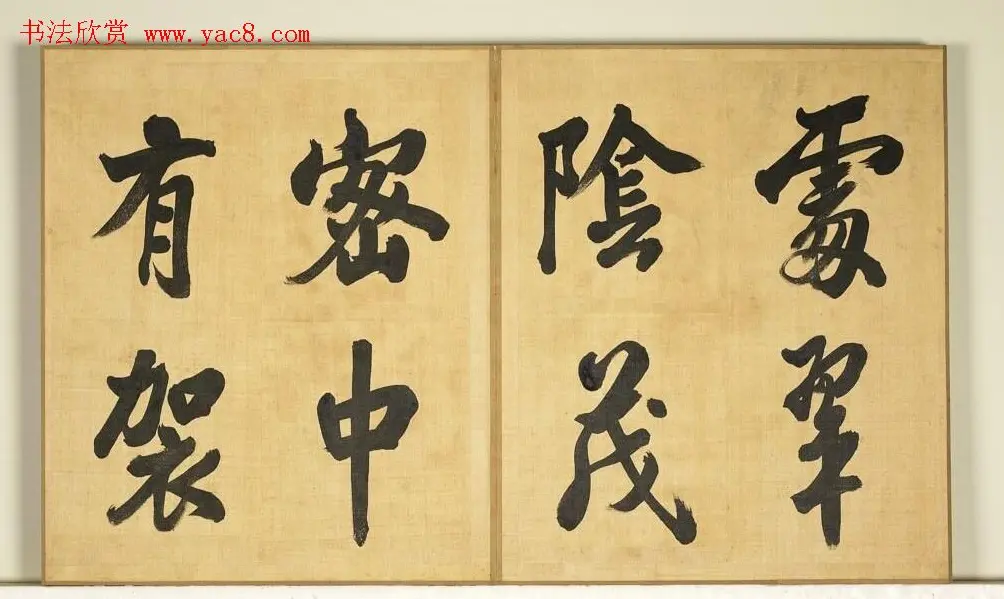 翠
陰茂
密中
有袈
书法欣赏 www.yac8.com